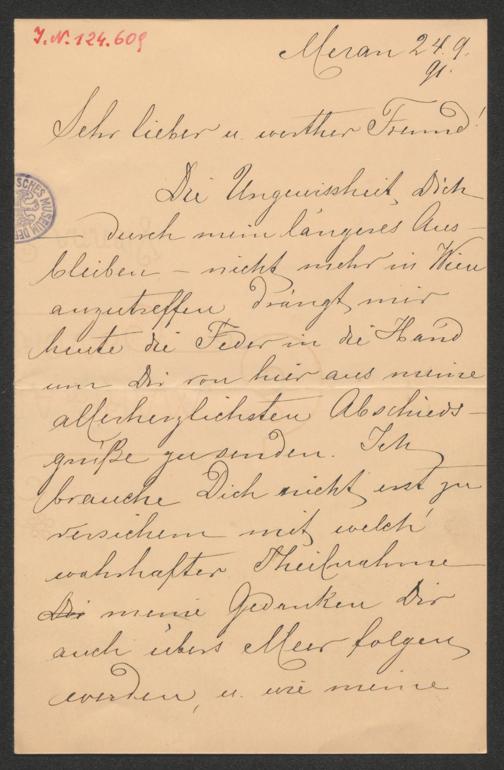 J.N. 124.609
Meran 24.9.
91.
Sehr lieber u. werther Freund!
Die Ungewissheit, Dich
– durch mein längeres Aus-
bleiben – nicht mehr in Wien
anzutreffen drängt mir
heute die Feder in die Hand
um Dir von hier aus meine
allerherzlichsten Abschieds-
grüße zu senden. Ich
brauche Dich nicht erst zu
versichern mit welch'
wahrhafter Theilnahme
Dir meine Gedanken Dir
auch übers Meer folgen
werden, u. wie meine
SCHES MUSEUM DER